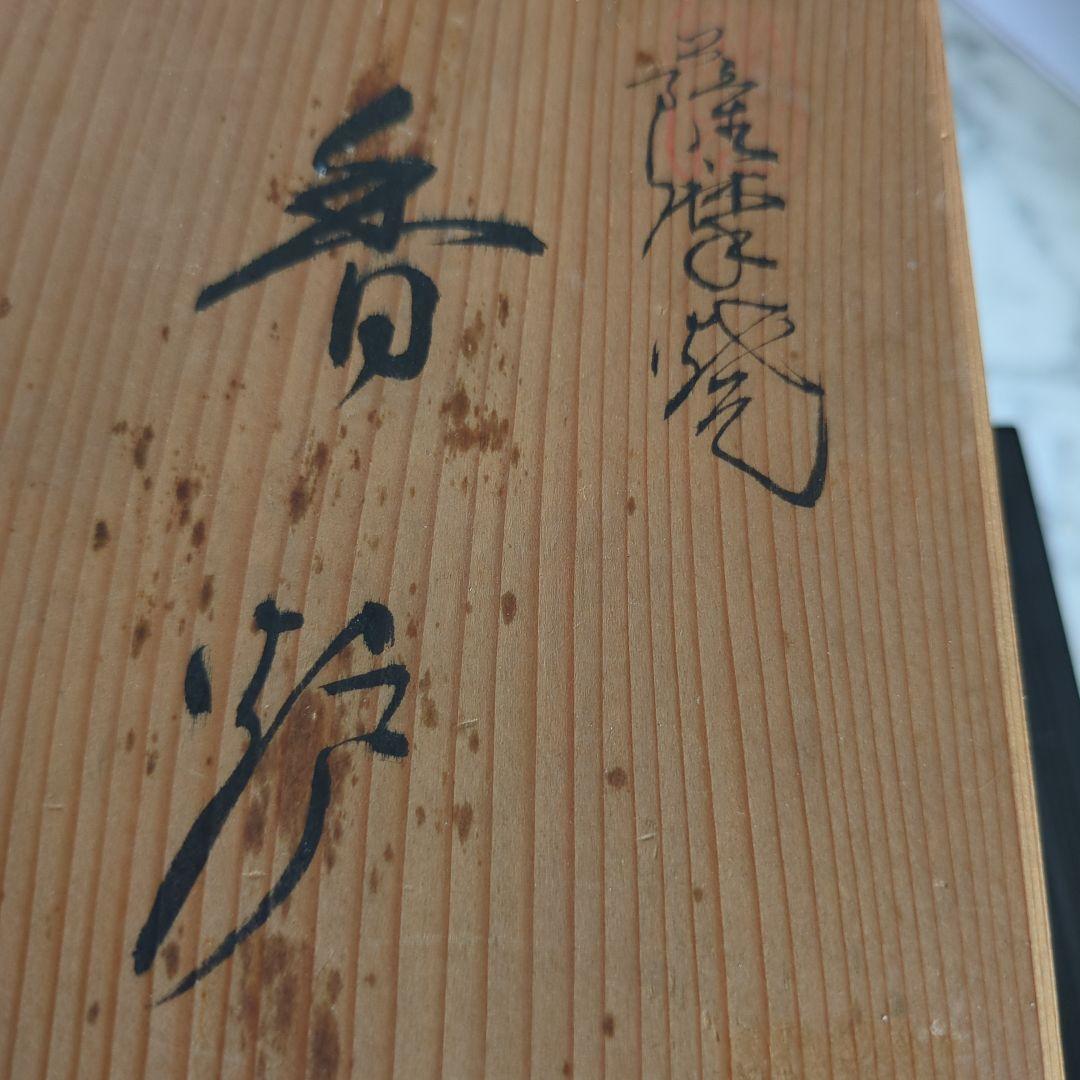 薩摩焼
香炉